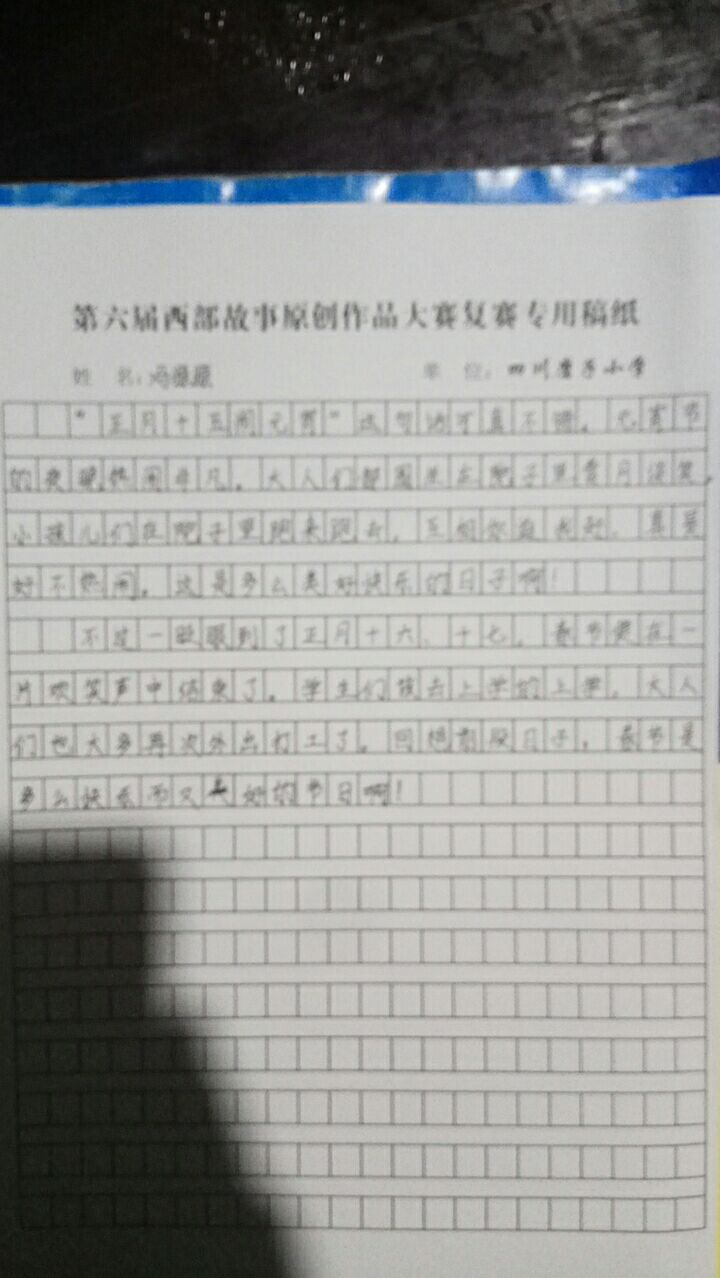 第六届西部故事原创作品大赛复赛专用稿纸
姓 名: 冯 单 位: 四川 小学
“正月十五闹元宵”这句话可真不错。元宵节
的夜晚热闹非凡。大人们都围坐在院子里赏月谈笑,
小孩儿们在院子里跑来跑去,互相你追我赶,真是
好不热闹。这是多么美好快乐的日子啊!
不过一眨眼到了正月十六、十七。春节便在一
片欢笑声中结束了。学生们 去上学的上学,大人
们也大多再次外出打工了。回想 段日子,春节是
多么快乐而又美好的节日啊!